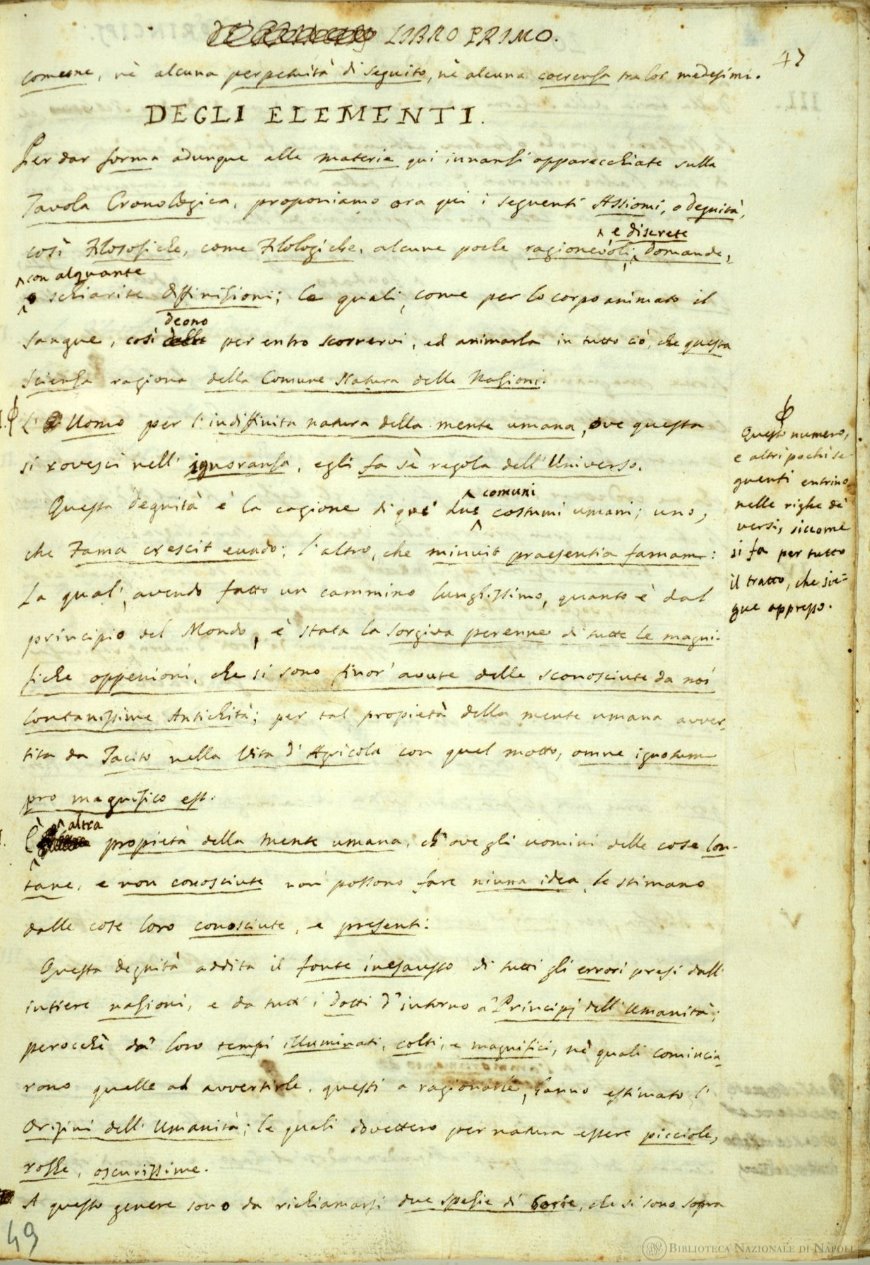 LIBRO PRIMO.
47
comune, nè alcuna perpetuità di seguito, nè alcuna coerenza tra lor medesimi.
DEGLI ELEMENTI.
Per dar forma adunque alle materie qui innanzi apparecchiate sulla
Tavola Cronologica, proponiamo ora qui i seguenti Assiomi, o degnità,
e discrete
così Filosofiche, come Filologiche, alcune poche ragionevoli, domande,
con alquante
schiarite diffinizioni; le quali, come per lo corpo animato il
deono
sangue, così per entro scorrervi, ed animarla in tutto ciò, che questa
Scienza ragiona della Comune Natura delle Nazioni.
I. φ L'Uomo per l'indiffinita natura della mente umana, ove questa
si rovesci nell'ignoranza, egli fa sè regola dell'Universo.
φ
Questo numero,
e altri pochi se-
guenti entrino
nelle righe de'
versi, siccome
si fa per tutto
il tratto, che sie-
gue appresso.
comuni
Questa degnità è la cagione di que' due costumi umani; uno,
che Fama crescit eundo; l'altro, che minuit praesentia famam:
La qual', avendo fatto un cammino lunghissimo, quanto è dal
principio del Mondo, è stata la sorgiva perenne di tutte le magni-
fiche oppenioni, che si sono finor' avute delle sconosciute da noi
lontanissime Antichità; per tal propietà della mente umana avver-
tita da Tacito nella Vita d'Agricola con quel motto, omne ignotum
pro magnifico est.
altra
È propietà della mente umana, ch'ove gli uomini delle cose lon-
tane, e non conosciute non possono fare niuna idea, le stimano
dalle cose loro conosciute, e presenti.
Questa degnità addita il fonte inesausto di tutti gli errori presi dall'
intiere nazioni, e da tutt' i Dotti d'intorno a' Principj dell'Umanità;
perocchè da' loro tempi illuminati, colti, e magnifici, ne' quali comincia-
rono quelle ad avvertirle, questi a ragionarle, hanno estimato l'
Origini dell'Umanità; le quali dovettero per natura essere picciole,
rozze, oscurissime.
A questo genere sono da richiamarsi due spezie di borie, che si sono sopra
49
BIBLIOTECA NAZIONALE DI NAPOLI